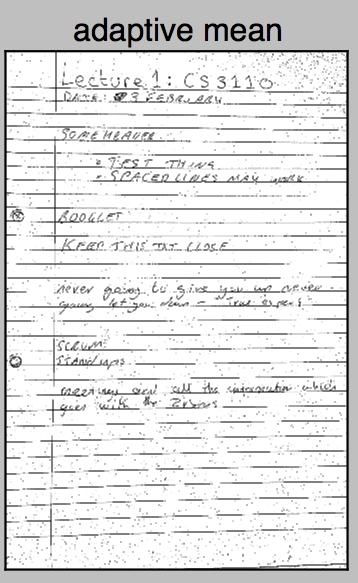 adaptive mean
Lecture 1: CS3110
DATE: 3 FEBRUARY
SOME HEADER
• TEST THING
• SPACED LINES MAY WORK
BOOKLET
KEEP THIS TXT CLOSE
never going to give you up never
going let you down - True
SCRUM:
STANDUPS
meetings and all the information which
goes with the